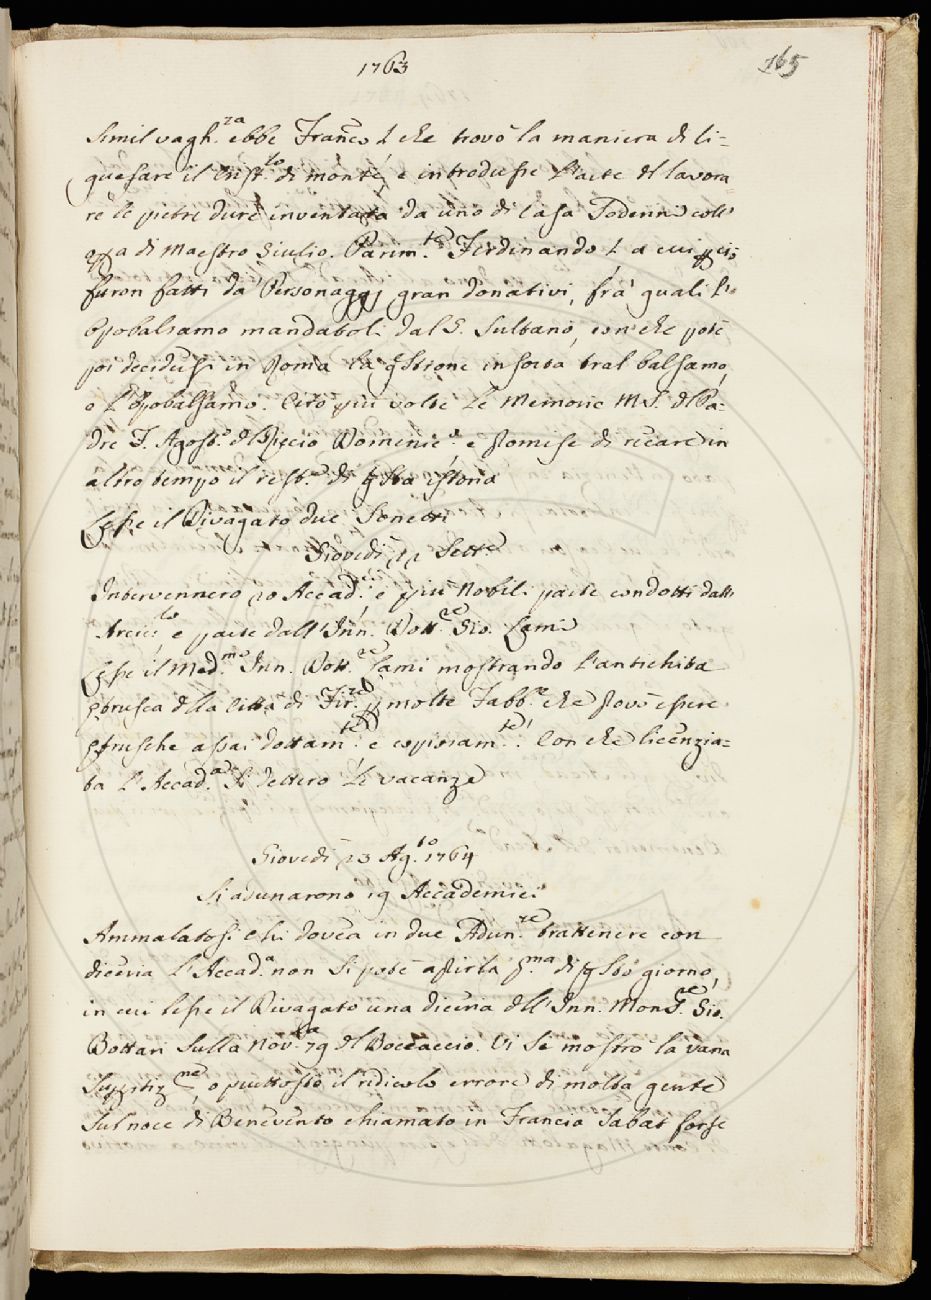 1763
165
Simil vagh.za ebbe Franc.o I. che trovò la maniera di li=
quefare il Crist.lo di monte, e introdusse l'arte di lavora=
re le pietre dure inventata da uno di casa Todenni coll'
opa di Maestro Giulio. Parim.te Ferdinando I. a cui
furon fatti da' Personaggj gran donativi, fra' quali l'
Opobalsamo mandatoli dal G. Sultano, con che potè
poi decidersi in Roma la qstione insorta tral balsamo,
e l'Opobalsamo. Citò più volte le Memorie M.S. del Pa=
dre F. Agost.o del Riccio Domenic.o e promise di recare in
altro tempo il rest.e di qsta istoria
Lesse il Rivagato due Sonetti
Giovedì 12 Sett.e
Intervennero 20 Accad.ci e più Nobili parte condotti dall'
Arcic.lo e parte dall'Inn. Dott.re Gio. Lami
Lesse il Med.mo Inn. Dott.re Lami mostrando l'antichità
Etrusca della città di Fir.ze p molte Fabb.e che provò essere
Etrusche assai dottam.te e copiosam.te. Con che licenzia=
ta l'Accad.a si dettero le vacanze
Giovedì 23 Ag.to 1764
Si adunarono 19 Accademici
Ammalatosi chi dovea in due Adun.ze trattenere con
diceria l'Accad.a non si potè aprirla p.ma di qsto giorno,
in cui lesse il Rivagato una diceria dell'Inn. Mons.re Gio.
Bottari sulla Nov.la 79 del Boccaccio. Vi si mostrò la vana
Superstiz.ne, o piuttosto il ridicolo errore di molta gente
sul noce di Benevento chiamato in Francia Sabat forse